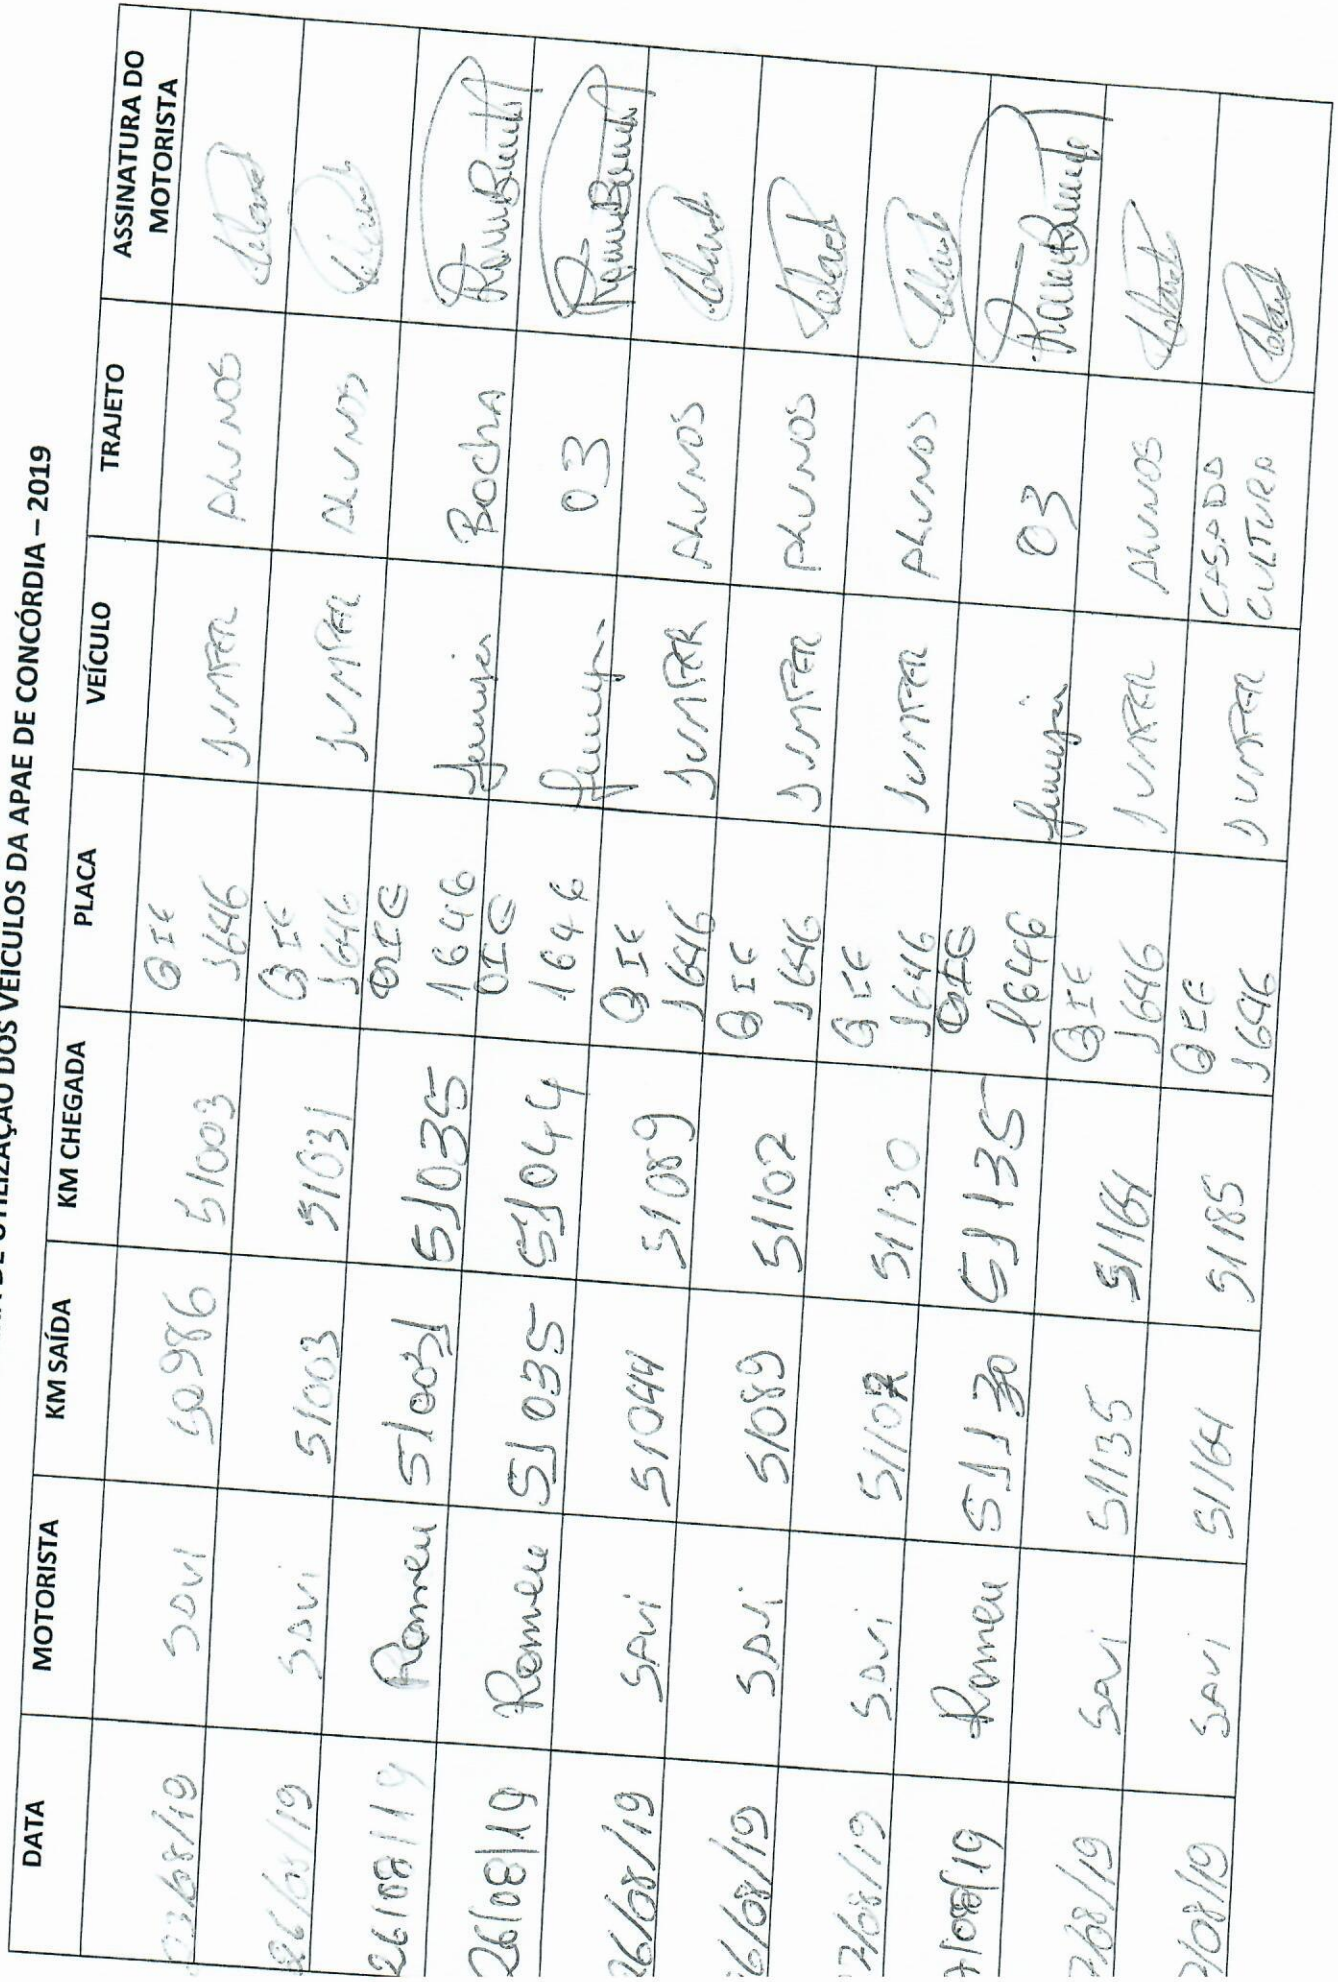 DE UTILIZAÇÃO DOS VEÍCULOS DA APAE DE CONCÓRDIA – 2019
DATA MOTORISTA KM SAÍDA KM CHEGADA PLACA VEÍCULO TRAJETO ASSINATURA DO MOTORISTA
23/08/19 SAVI 50986 51003 QIE 1646 JUMPER ALUNOS
26/08/19 SAVI 51003 51031 QIE 1646 JUMPER ALUNOS
26/08/19 Romeu 51031 51035 QIE 1646 Jumper BochA
26/08/19 Romeu 51035 51044 QIE 1646 Jumper 03
26/08/19 SAVI 51044 51089 QIE 1646 JUMPER ALUNOS
6/08/19 SAVI 51089 51102 QIE 1646 JUMPER ALUNOS
7/08/19 SAVI 51102 51130 QIE 1646 JUMPER ALUNOS
7/08/19 Romeu 51130 51135 QIE 1646 Jumper 03
7/08/19 SAVI 51135 51164 QIE 1646 JUMPER ALUNOS
7/08/19 SAVI 51164 51185 QIE 1646 JUMPER CASA DA CULTURA